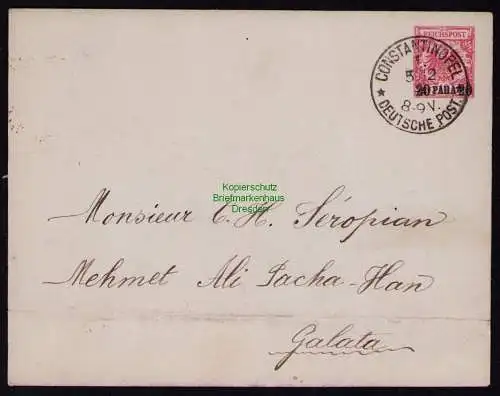 REICHSPOST
CONSTANTINOPEL
1
5 12
20 PARA 20
8-9V.
★ DEUTSCHE POST. ★
Kopierschutz
Briefmarkenhaus
Dresden
Monsieur C. H. Séropian
Mehmet Ali Pacha-Han
Galata